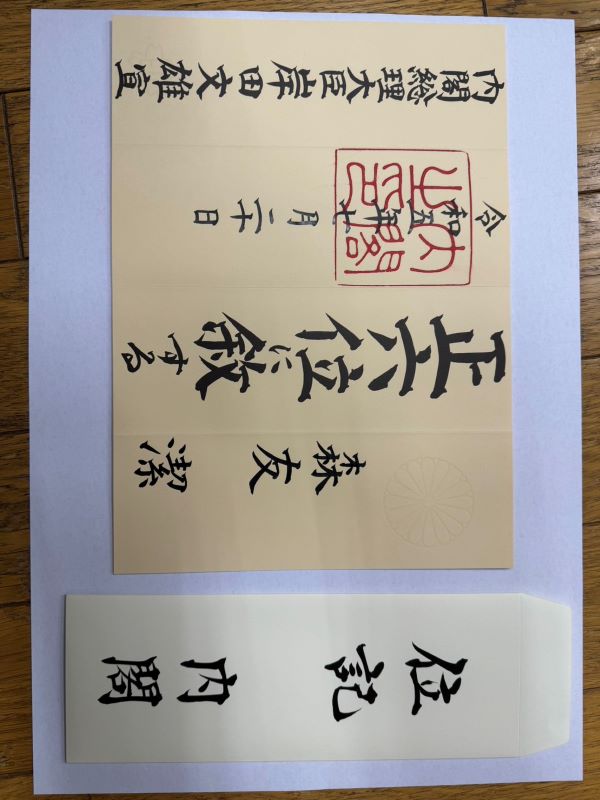 森友潔
正六位に叙する
令和五年七月二十日
内閣総理大臣岸田文雄宣
内閣
之印
位記
内閣